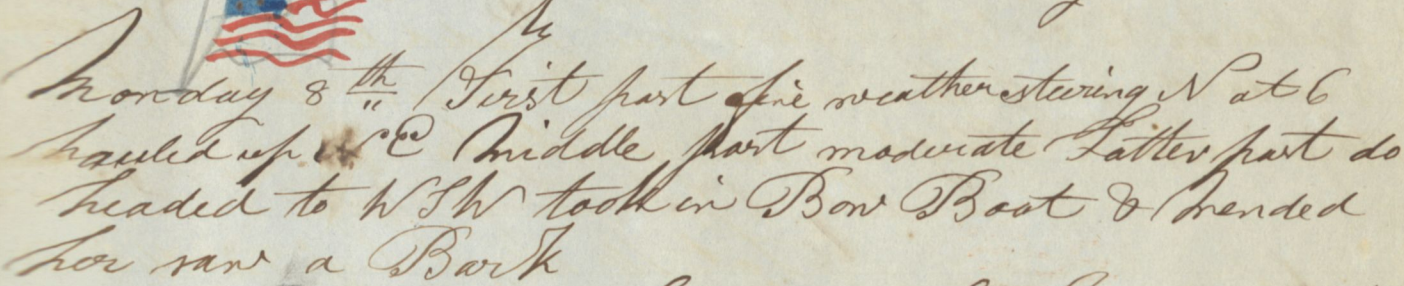 Monday 8th First part fine weather steering N at 6
hauled up Middle part moderate Latter part do
headed to WSW took in Bow Boat & Mended
her saw a Bark